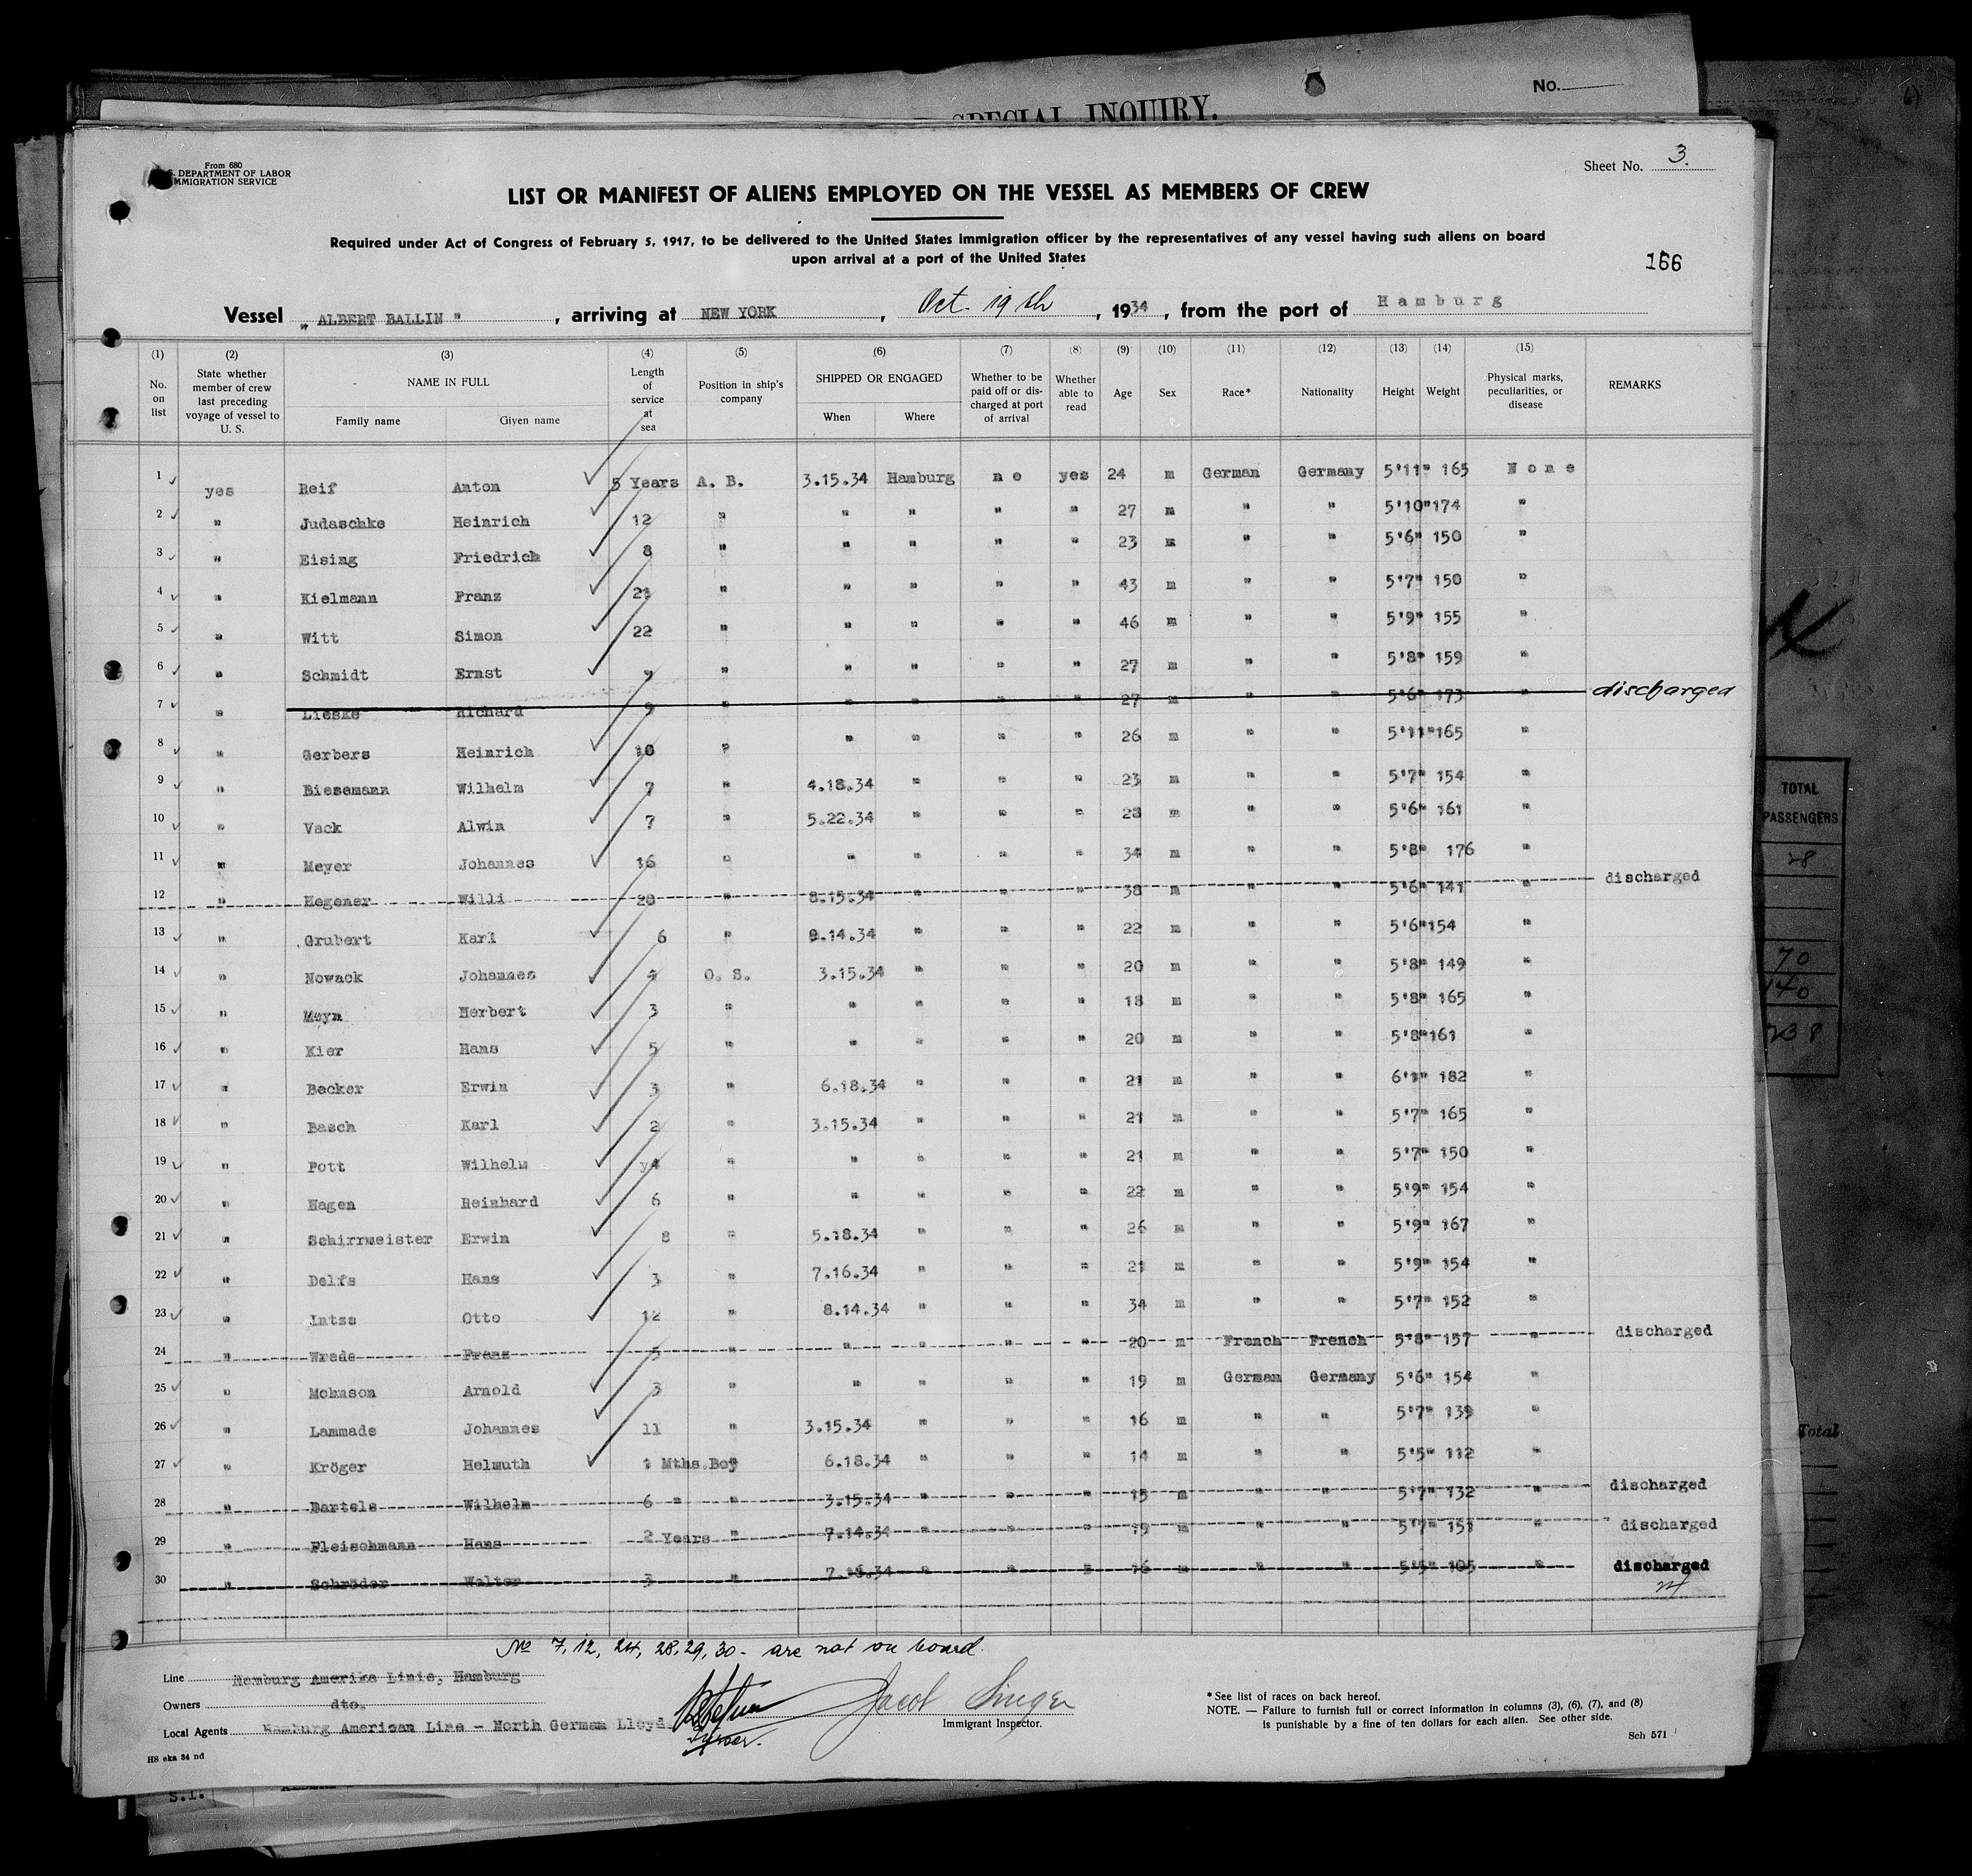 No.
SPECIAL INQUIRY.
From 680
S. DEPARTMENT OF LABOR
MMIGRATION SERVICE
Sheet No. 3.
LIST OR MANIFEST OF ALIENS EMPLOYED ON THE VESSEL AS MEMBERS OF CREW
Required under Act of Congress of February 5, 1917, to be delivered to the United States immigration officer by the representatives of any vessel having such aliens on board
upon arrival at a port of the United States
166
Vessel „ ALBERT BALLIN " , arriving at NEW YORK , Oct. 19th , 1934 , from the port of Hamburg
(1) (2) (3) (4) (5) (6) (7) (8) (9) (10) (11) (12) (13) (14) (15)
No. on list State whether member of crew last preceding voyage of vessel to U. S. NAME IN FULL Family name Given name Length of service at sea Position in ship's company SHIPPED OR ENGAGED When Where Whether to be paid off or discharged at port of arrival Whether able to read Age Sex Race* Nationality Height Weight Physical marks, peculiarities, or disease REMARKS
1 yes Reif Anton 5 Years A. B. 3.15.34 Hamburg no yes 24 m German Germany 5'11" 165 None
2 " Judaschke Heinrich 12 " " " " " 27 m " " 5'10" 174 "
3 " Eising Friedrich 8 " " " " " 23 m " " 5'6" 150 "
4 " Kielmann Franz 21 " " " " " 43 m " " 5'7" 150 "
5 " Witt Simon 22 " " " " " 46 m " " 5'9" 155 "
6 " Schmidt Ernst " " " " " 27 m " " 5'8" 159 "
7 " Lieske Richard 9 " " " " " 27 m " " 5'6" 173 " discharged
8 " Gerbers Heinrich 10 " " " " " 26 m " " 5'11" 165 "
9 " Biesemann Wilhelm 7 " 4.18.34 " " " 23 m " " 5'7" 154 "
10 " Vack Alwin 7 " 5.22.34 " " " 23 m " " 5'6" 161 "
11 " Meyer Johannes 16 " " " " " 34 m " " 5'8" 176 "
12 " Hegener Willi 20 " 8.15.34 " " " 38 m " " 5'6" 141 " discharged
13 " Grubert Karl 6 " 9.14.34 " " " 22 m " " 5'6" 154 "
14 " Nowack Johannes 4 O. S. 3.15.34 " " " 20 m " " 5'8" 149 "
15 " Meyn Herbert 3 " " " " " 18 m " " 5'8" 165 "
16 " Kier Hans 5 " " " " " 20 m " " 5'8" 161 "
17 " Becker Erwin 3 " 6.18.34 " " " 21 m " " 6'1" 182 "
18 " Basch Karl 2 " 3.15.34 " " " 21 m " " 5'7" 165 "
19 " Pott Wilhelm y4 " " " " " 21 m " " 5'7" 150 "
20 " Hagen Reinhard 6 " " " " " 22 m " " 5'9" 154 "
21 " Schirrmeister Erwin 8 " 5.18.34 " " " 26 m " " 5'9" 167 "
22 " Delfs Hans 3 " 7.16.34 " " " 21 m " " 5'9" 154 "
23 " Intze Otto 12 " 8.14.34 " " " 34 m " " 5'7" 152 "
24 " Wrede Franz 5 " " " " " 20 m French French 5'8" 157 " discharged
25 " Mohnson Arnold 3 " " " " " 19 m German Germany 5'6" 154 "
26 " Lammade Johannes 11 " 3.15.34 " " " 16 m " " 5'7" 139 "
27 " Kröger Helmuth 1 Mths. Boy 6.18.34 " " " 14 m " " 5'5" 112 "
28 " Bartels Wilhelm 6 " " 3.15.34 " " " 15 m " " 5'7" 132 " discharged
29 " Fleischmann Hans 2 Years " 7.14.34 " " " 19 m " " 5'7" 151 " discharged
30 " Schröder Walter 3 " 7.16.34 " " " 16 m " " 5'5" 105 " discharged
No 7, 12, 24, 28, 29, 30 - are not on board.
Line Hamburg Amerika Linie, Hamburg
Owners dto.
Local Agents Hamburg American Line - North German Lloyd
Jacob Singer
Immigrant Inspector.
* See list of races on back hereof.
NOTE. — Failure to furnish full or correct information in columns (3), (6), (7), and (8)
is punishable by a fine of ten dollars for each alien. See other side.
HS eka 34 nd
Sch 571
TOTAL
PASSENGERS
28
70
140
238
Total
S.I.